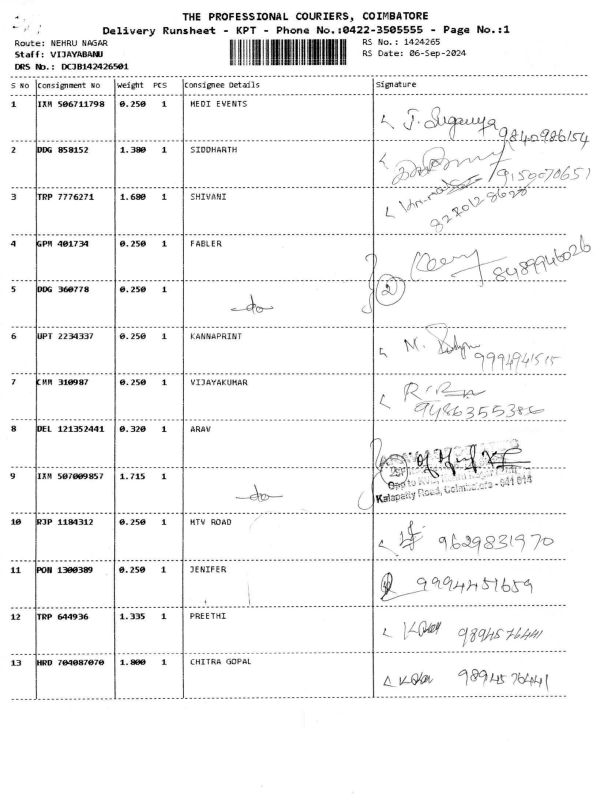 THE PROFESSIONAL COURIERS, COIMBATORE
Delivery Runsheet - KPT - Phone No.:0422-3505555 - Page No.:1
Route: NEHRU NAGAR RS No.: 1424265
Staff: VIJAYABANU RS Date: 06-Sep-2024
DRS No.: DCJB142426501
S No Consignment No Weight PCS Consignee Details Signature
1 IXM 506711798 0.250 1 MEDI EVENTS J. Suganya 9840986154
2 DDG 858152 1.380 1 SIDDHARTH 9150070651
3 TRP 7776271 1.680 1 SHIVANI
4 GPM 401734 0.250 1 FABLER 8489946026
5 DDG 360778 0.250 1 do 2
6 UPT 2234337 0.250 1 KANNAPRINT M. 9994941515
7 CMM 310987 0.250 1 VIJAYAKUMAR 9486355386
8 DEL 121352441 0.320 1 ARAV
9 IXM 507009857 1.715 1 do
Opp to
Kalapatty Road, Coimbatore - 641 014
10 RJP 1184312 0.250 1 MTV ROAD 9629831970
11 PON 1300389 0.250 1 JENIFER 9994451659
12 TRP 644936 1.335 1 PREETHI 9894576441
13 HRD 704087070 1.800 1 CHITRA GOPAL 9894576441